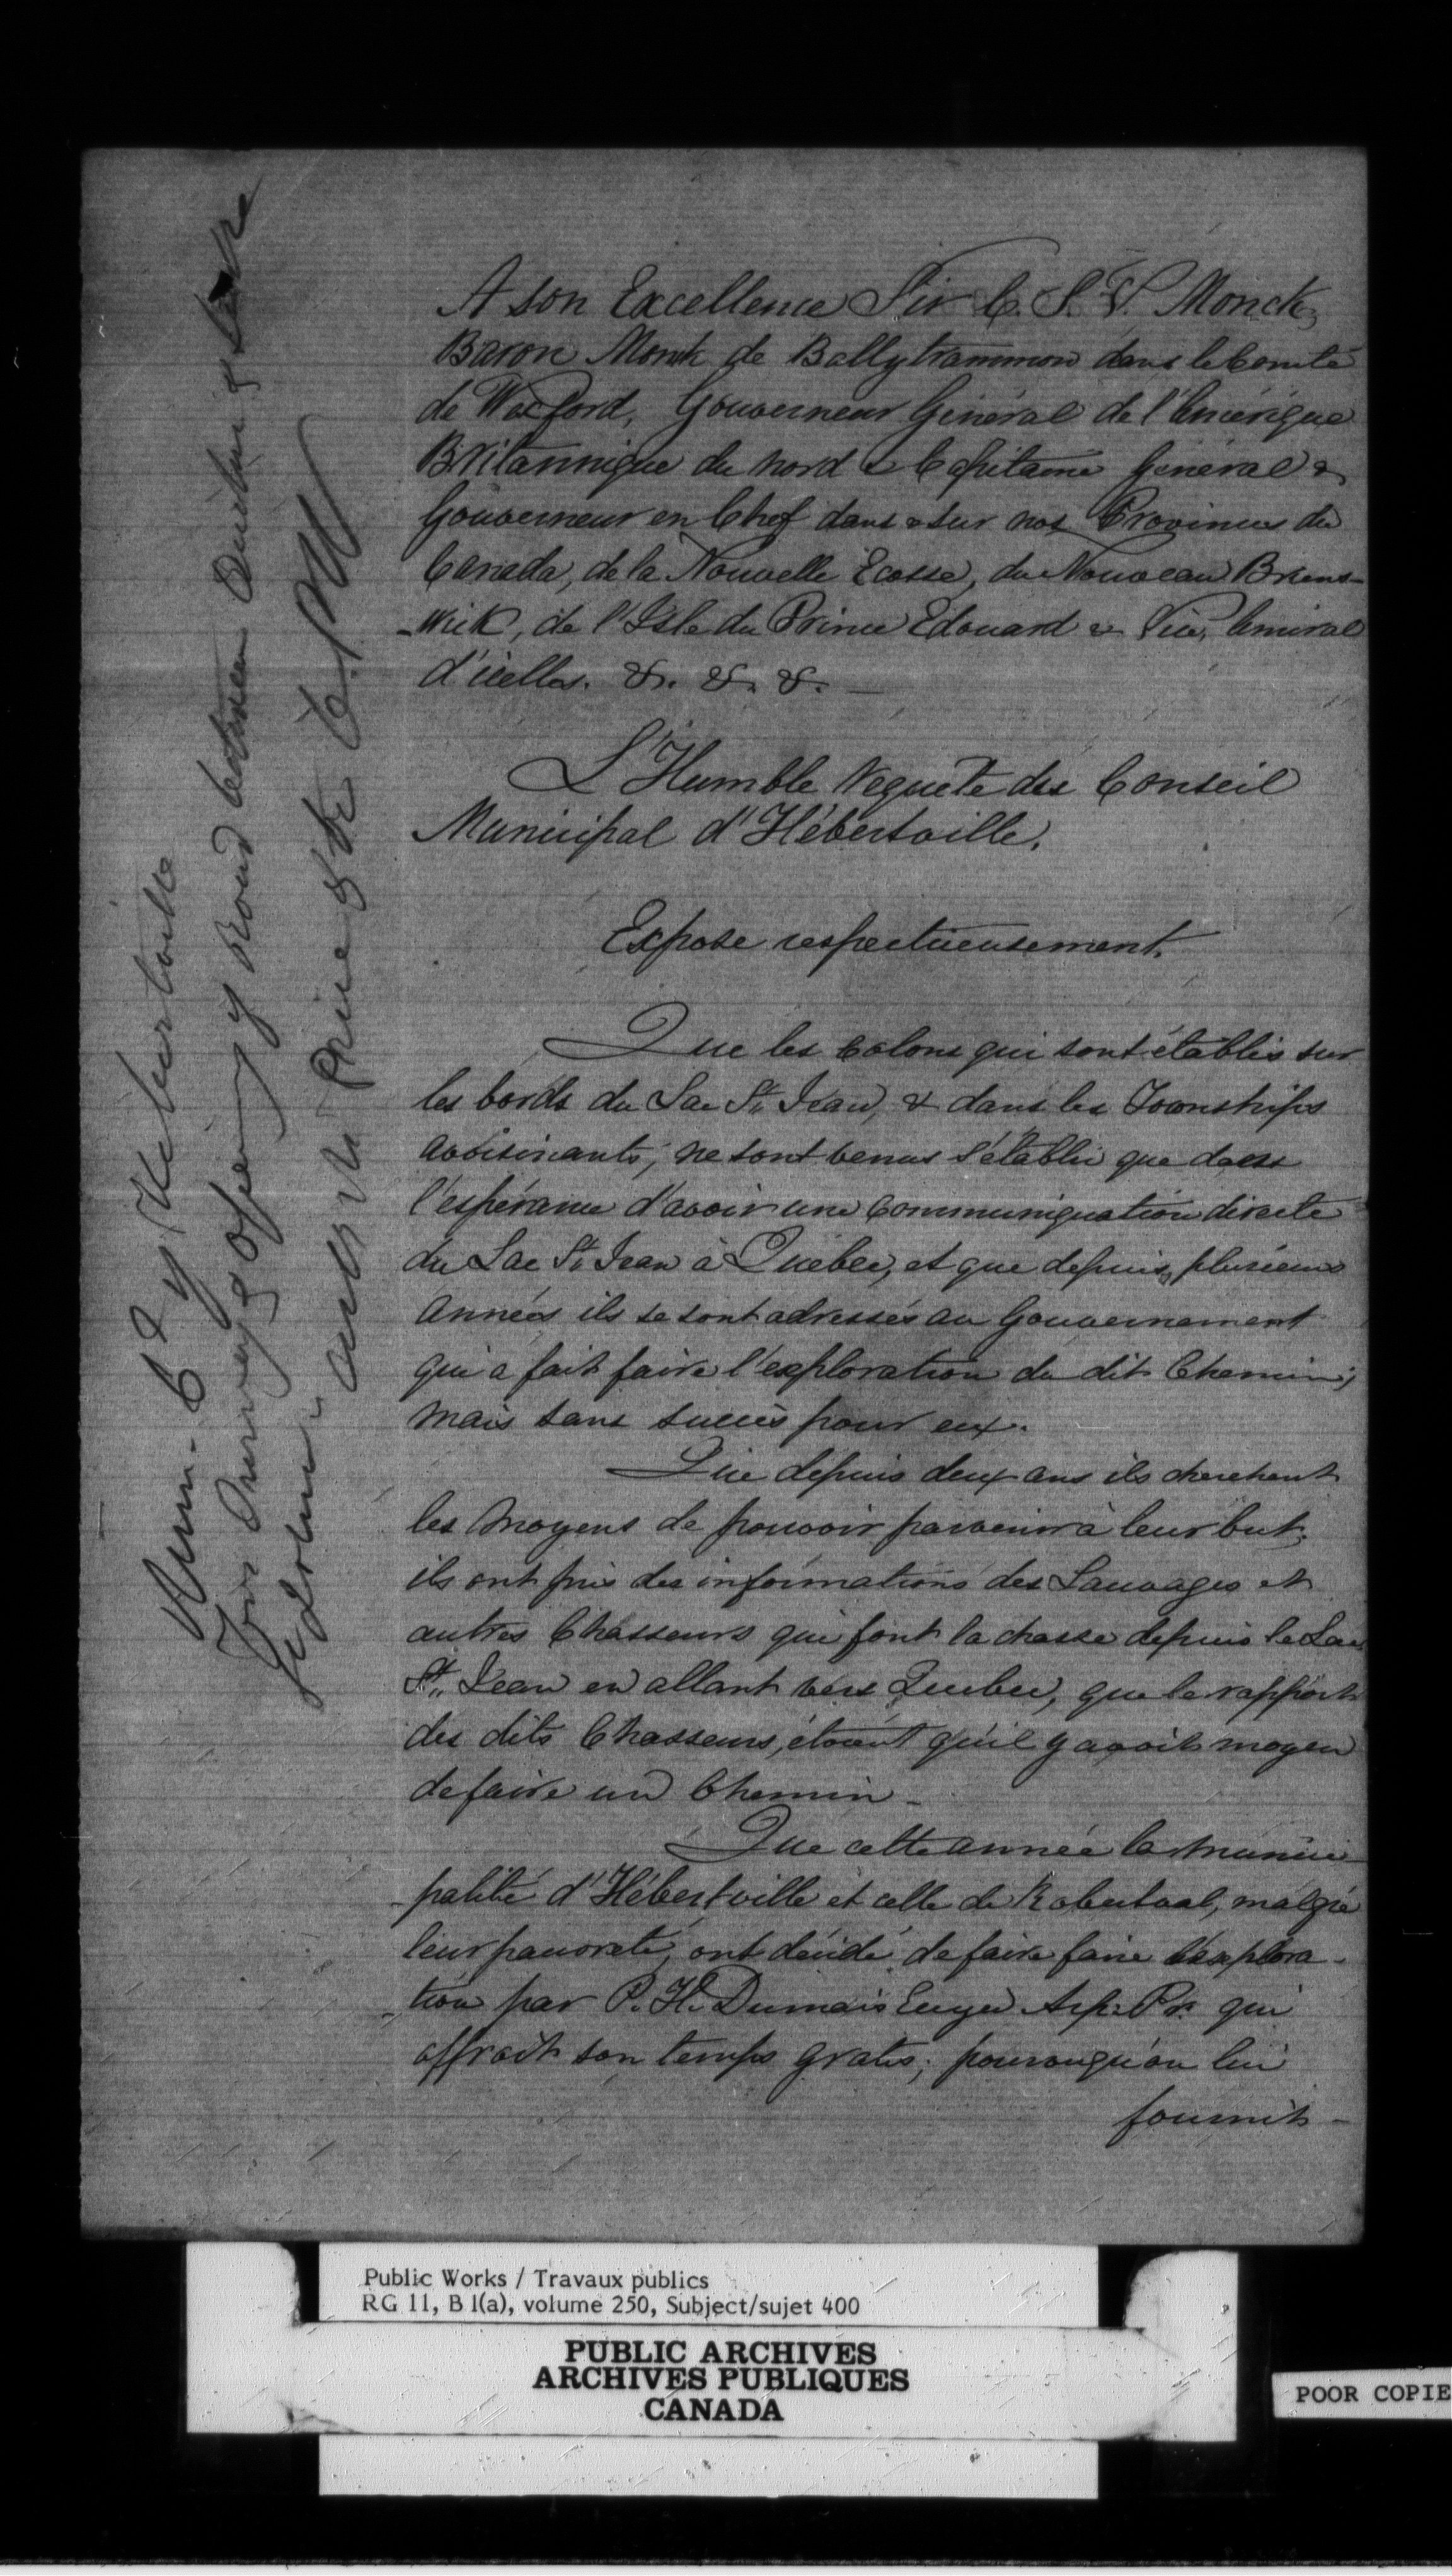 A son Excellence Sir C. S. V. Monck,
Baron Monck de Ballytrammon dans le Comté
de Wexford, Gouverneur Général de l'Amérique
Britannique du nord & Capitaine Général &
Gouverneur en Chef dans & sur nos Provinces du
Canada, de la Nouvelle Ecosse, du Nouveau Bruns-
-wick, de l'Isle du Prince Edouard & Vice, Amiral
d'icelles. &. &. &. —
L'Humble Requete du Conseil
Municipal d'Hébertville,
Expose respectueusement.
Que les Colons qui sont établis sur
les bords du Lac St. Jean, & dans les Townships
avoisinants, ne sont venus s'établir que dans
l'espérance d'avoir une communiquation directe
du Lac St. Jean à Québec, et que depuis plusieurs
années ils se sont adressés au Gouvernement
qui a fait faire l'exploration du dit Chemin;
mais sans succès pour eux.
Que depuis deux ans ils cherchent
les moyens de pouvoir parvenir à leur but;
ils ont pris des informations des Sauvages et
autres Chasseurs qui font la chasse depuis le Lac
St. Jean en allant vers Quebec, que le rapport
des dits Chasseurs, étoient qu'il y avoit moyen
de faire un Chemin -
Que cette année la Munici-
-palité d'Hébertville et celle de Roberval, malgré
leur pauvreté, ont décidé de faire faire l'explora-
-tion par P. H. Dumais Ecuyer Arp. Pr. qui
offrait son temps gratis; pourvu qu'on lui
fournit -
Mun. Cl of Hebertville
For Survey & Opening of Road between Quebec & Lake
St John
Public Works / Travaux publics
RG 11, B 1(a), volume 250, Subject/sujet 400
PUBLIC ARCHIVES
ARCHIVES PUBLIQUES
CANADA
POOR COPIE